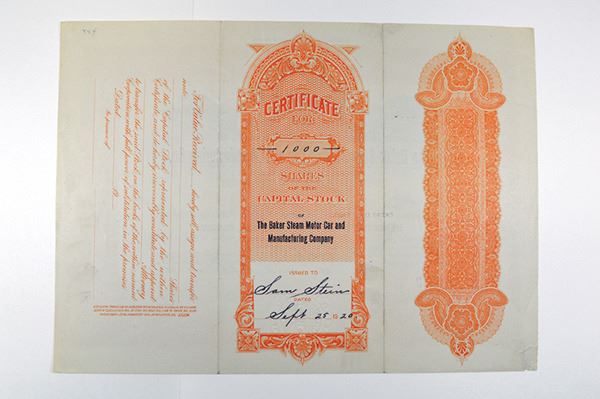 For Value Received hereby sell, assign and transfer
unto
Shares
of the Capital Stock represented by the within
Certificate and do hereby irrevocably constitute and appoint
Attorney
to transfer the said Stock on the books of the within named
Corporation with full power of substitution in the premises
Dated
In presence of
CERTIFICATE
FOR
1000
SHARES
OF THE
CAPITAL STOCK
OF
The Baker Steam Motor Car and
Manufacturing Company
ISSUED TO
Sam Stein
DATED
Sept 25 1920